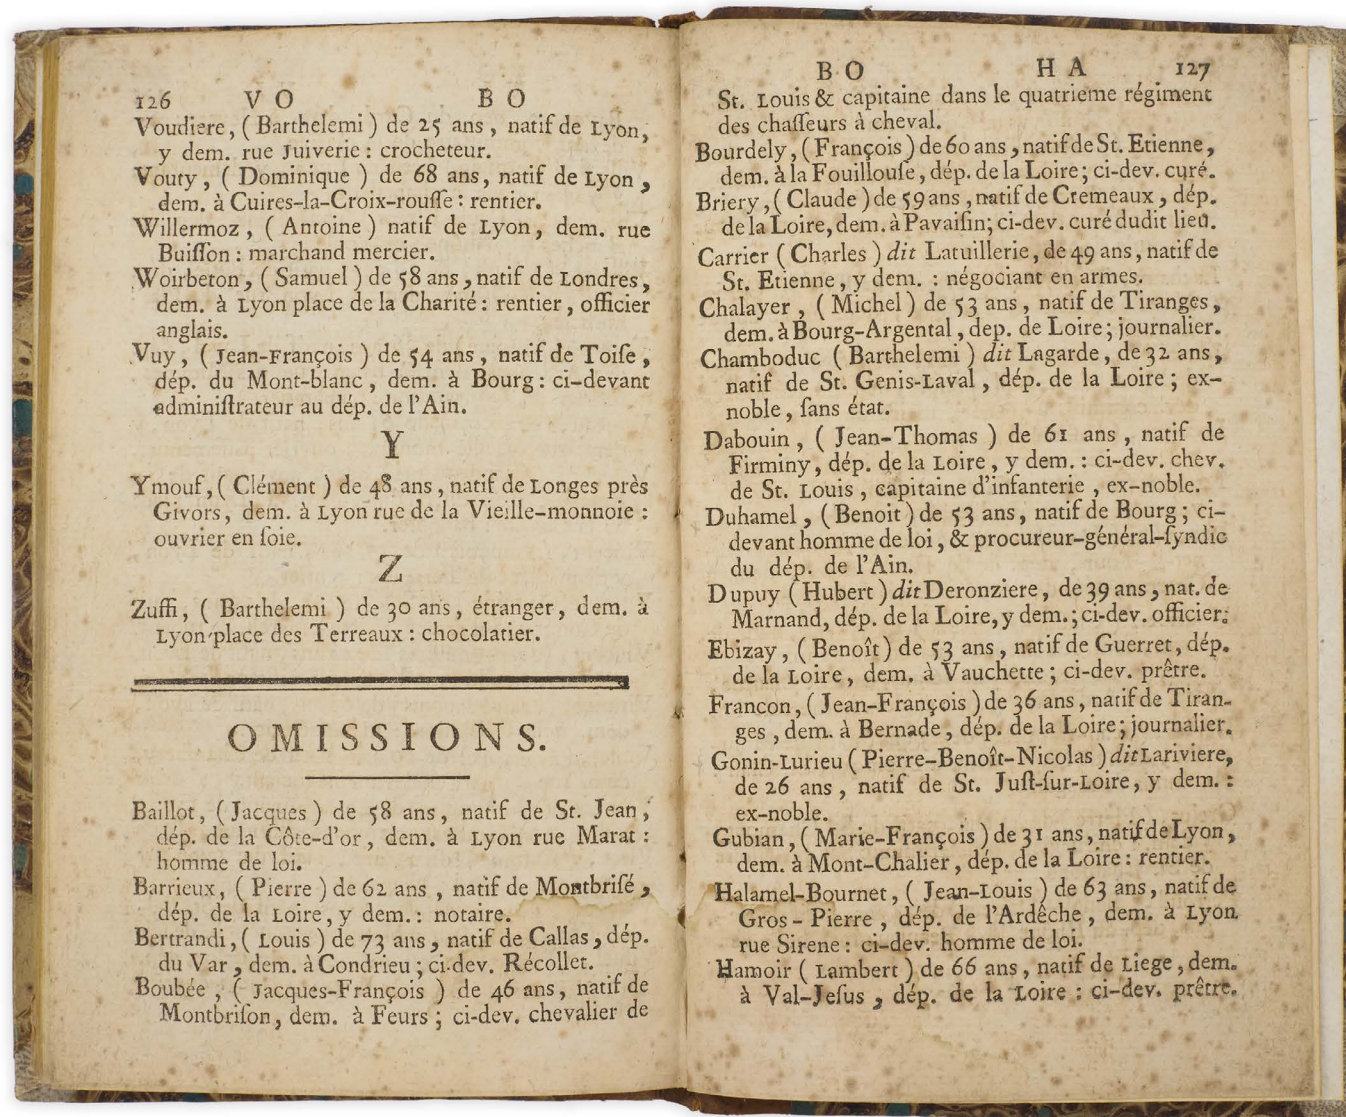 126 VO BO
Voudiere, ( Barthelemi ) de 25 ans, natif de Lyon,
y dem. rue Juiverie : crocheteur.
Vouty, ( Dominique ) de 68 ans, natif de Lyon,
dem. à Cuires-la-Croix-rouſſe : rentier.
Willermoz, ( Antoine ) natif de Lyon, dem. rue
Buiſſon : marchand mercier.
Woirbeton, ( Samuel ) de 58 ans, natif de Londres,
dem. à Lyon place de la Charité : rentier, officier
anglais.
Vuy, ( Jean-François ) de 54 ans, natif de Toiſe,
dép. du Mont-blanc, dem. à Bourg : ci-devant
adminiſtrateur au dép. de l'Ain.
Y
Ymouf, ( Clément ) de 48 ans, natif de Longes près
Givors, dem. à Lyon rue de la Vieille-monnoie :
ouvrier en ſoie.
Z
Zuffi, ( Barthelemi ) de 30 ans, étranger, dem. à
Lyon place des Terreaux : chocolatier.
OMISSIONS.
Baillot, ( Jacques ) de 58 ans, natif de St. Jean,
dép. de la Côte-d'or, dem. à Lyon rue Marat :
homme de loi.
Barrieux, ( Pierre ) de 62 ans, natif de Montbriſé,
dép. de la Loire, y dem. : notaire.
Bertrandi, ( Louis ) de 73 ans, natif de Callas, dép.
du Var, dem. à Condrieu ; ci-dev. Récollet.
Boubée, ( Jacques-François ) de 46 ans, natif de
Montbriſon, dem. à Feurs ; ci-dev. chevalier de
BO HA 127
St. Louis & capitaine dans le quatrieme régiment
des chaſſeurs à cheval.
Bourdely, ( François ) de 60 ans, natif de St. Etienne,
dem. à la Fouillouſe, dép. de la Loire ; ci-dev. curé.
Briery, ( Claude ) de 59 ans, natif de Cremeaux, dép.
de la Loire, dem. à Pavaiſin; ci-dev. curé dudit lieu.
Carrier ( Charles ) dit Latuillerie, de 49 ans, natif de
St. Etienne, y dem. : négociant en armes.
Chalayer, ( Michel ) de 53 ans, natif de Tiranges,
dem. à Bourg-Argental, dep. de Loire ; journalier.
Chamboduc ( Barthelemi ) dit Lagarde, de 32 ans,
natif de St. Genis-Laval, dép. de la Loire ; ex-
noble, ſans état.
Dabouin, ( Jean-Thomas ) de 61 ans, natif de
Firminy, dép. de la Loire, y dem. : ci-dev. chev.
de St. Louis, capitaine d'infanterie, ex-noble.
Duhamel, ( Benoit ) de 53 ans, natif de Bourg ; ci-
devant homme de loi, & procureur-général-ſyndic
du dép. de l'Ain.
Dupuy ( Hubert ) dit Deronziere, de 39 ans, nat. de
Marnand, dép. de la Loire, y dem. ; ci-dev. officier.
Ebizay, ( Benoît ) de 53 ans, natif de Guerret, dép.
de la Loire, dem. à Vauchette ; ci-dev. prêtre.
Francon, ( Jean-François ) de 36 ans, natif de Tiran-
ges, dem. à Bernade, dép. de la Loire ; journalier.
Gonin-Lurieu ( Pierre-Benoît-Nicolas ) dit Lariviere,
de 26 ans, natif de St. Juſt-ſur-Loire, y dem. :
ex-noble.
Gubian, ( Marie-François ) de 31 ans, natif de Lyon,
dem. à Mont-Chalier, dép. de la Loire : rentier.
Halamel-Bournet, ( Jean-Louis ) de 63 ans, natif de
Gros-Pierre, dép. de l'Ardêche, dem. à Lyon
rue Sirene : ci-dev. homme de loi.
Hamoir ( Lambert ) de 66 ans, natif de Liege, dem.
à Val-Jeſus, dép. de la Loire : ci-dev. prêtre.